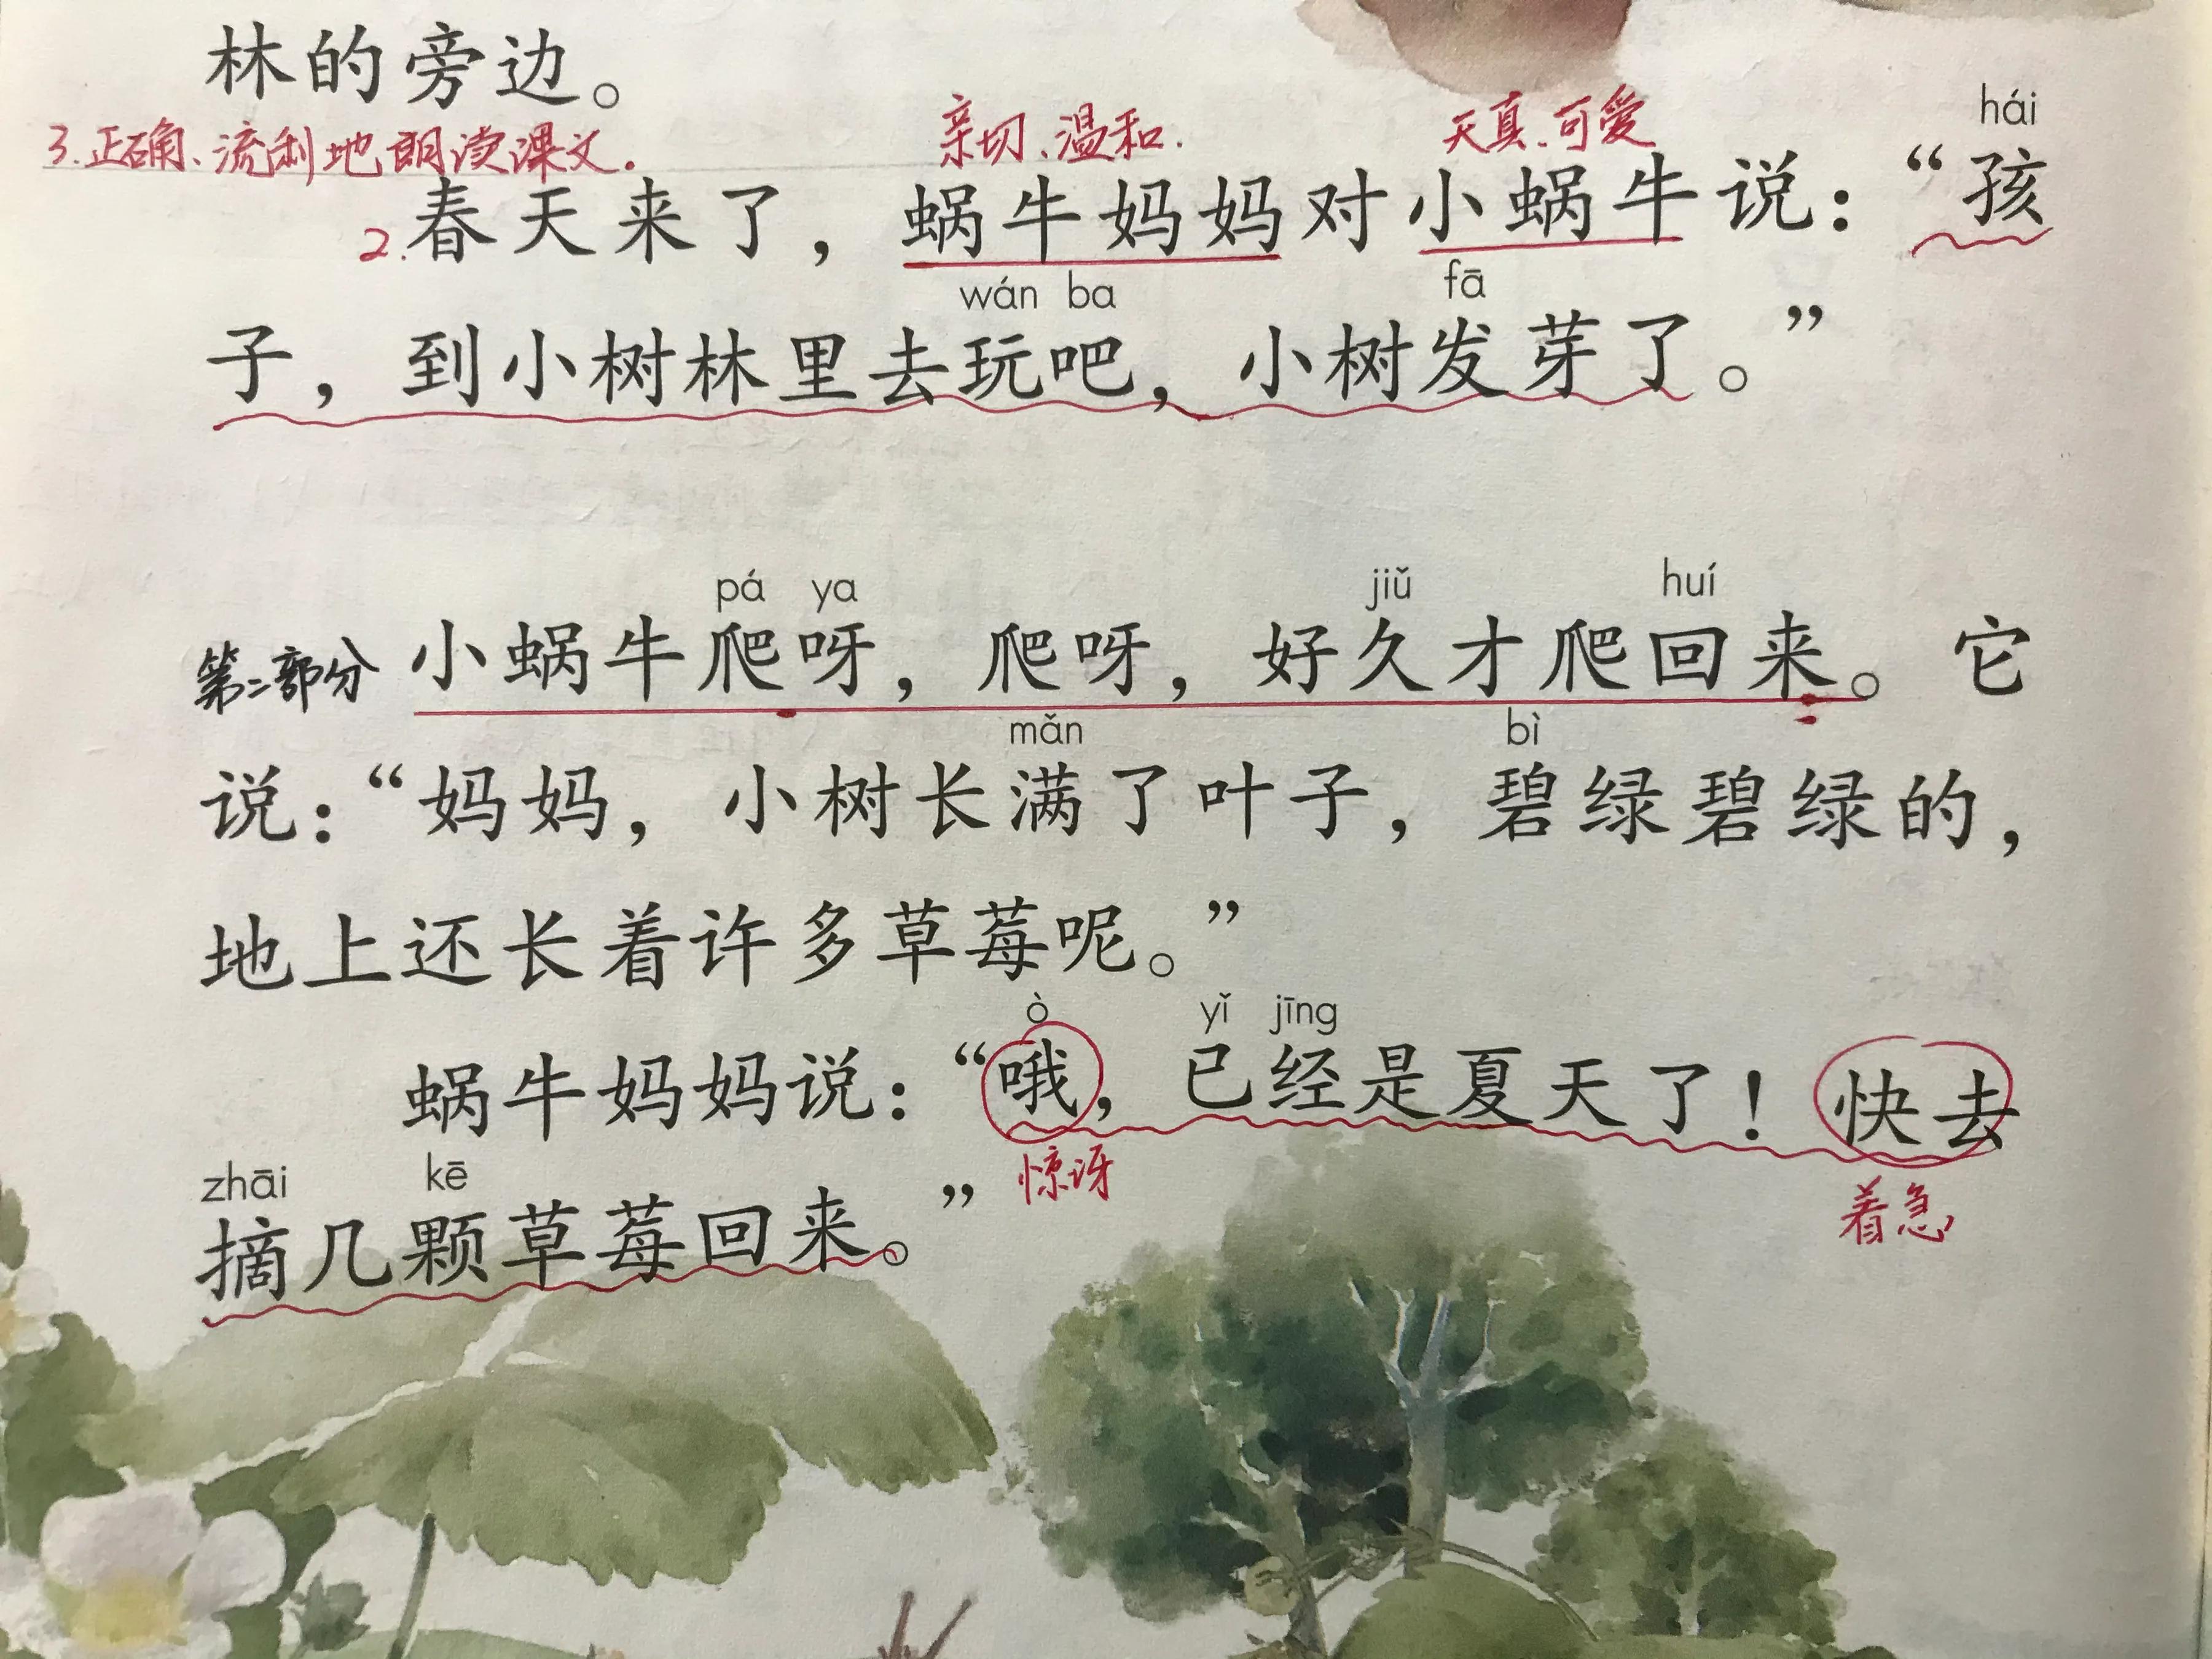 林的旁边。
3.正确、流利地朗读课文.
亲切、温和.
天真、可爱
hái
2.春天来了，蜗牛妈妈对小蜗牛说：“孩
wán ba fā
子，到小树林里去玩吧，小树发芽了。”
pá ya jiǔ huí
第二部分 小蜗牛爬呀，爬呀，好久才爬回来。它
mǎn bì
说：“妈妈，小树长满了叶子，碧绿碧绿的，
地上还长着许多草莓呢。”
ò yǐ jīng
蜗牛妈妈说：“哦，已经是夏天了！快去
惊讶
着急
zhāi kē
摘几颗草莓回来。”